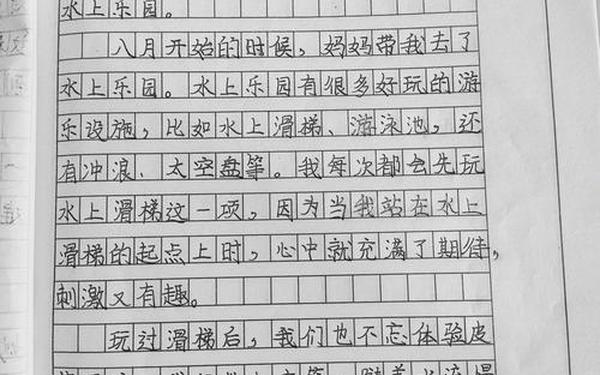 水上乐园。
八月开始的时候，妈妈带我去了
水上乐园。水上乐园有很多好玩的游
乐设施，比如水上滑梯、游泳池，还
有冲浪、太空盘等。我每次都会先玩
水上滑梯这一项，因为当我站在水上
滑梯的起点上时，心中就充满了期待，
刺激又有趣。
玩过滑梯后，我们也不忘体验皮